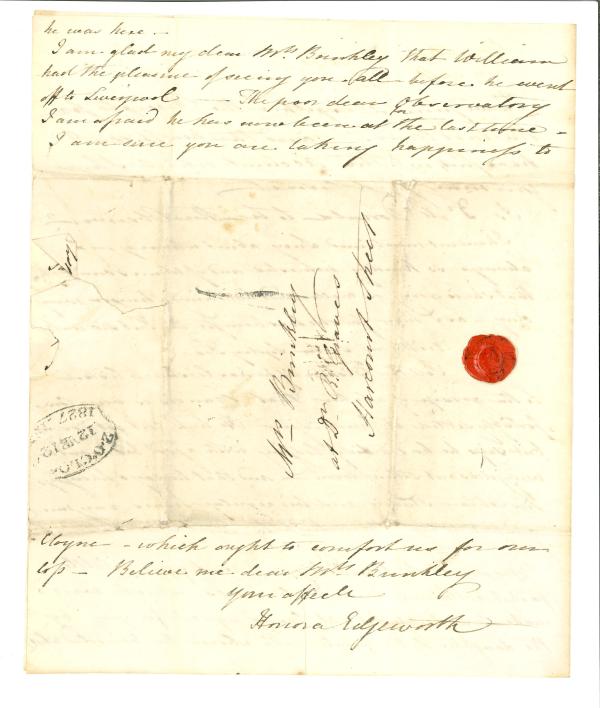 he was here. -
I am glad my dear Mrs Brinkley that William
had the pleasure of seeing you all before he went
off to Liverpool — The poor dear Observatory
I am afraid he has now been at for the last time -
I am sure you are taking happiness to
Mrs Brinkley
at Dr Graves
Harcourt Street
2 O'CLO
12 12
1827
Cloyne - which ought to comfort us for our
loss - Believe me dear Mrs Brinkley
your affecte
Honora Edgeworth